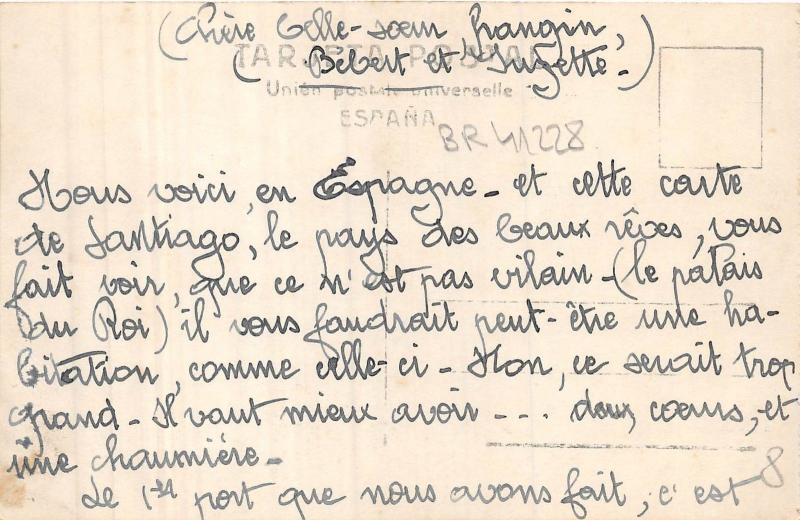 (Chère belle-sœur, frangin,
TARJETA POSTAL
(Bébert et Suzette-)
Unión postale universelle
ESPAÑA
BR 41228
Nous voici, en Espagne - et cette carte
de Santiago, le pays des beaux rêves, vous
fait voir, que ce n'est pas vilain - (le palais
du Roi) il vous faudrait peut-être une ha-
bitation, comme celle-ci - Non, ce serait trop
grand - Il vaut mieux avoir - - - deux, cœurs, et
une chaumière -
Le 1er port que nous avons fait, c'est
8